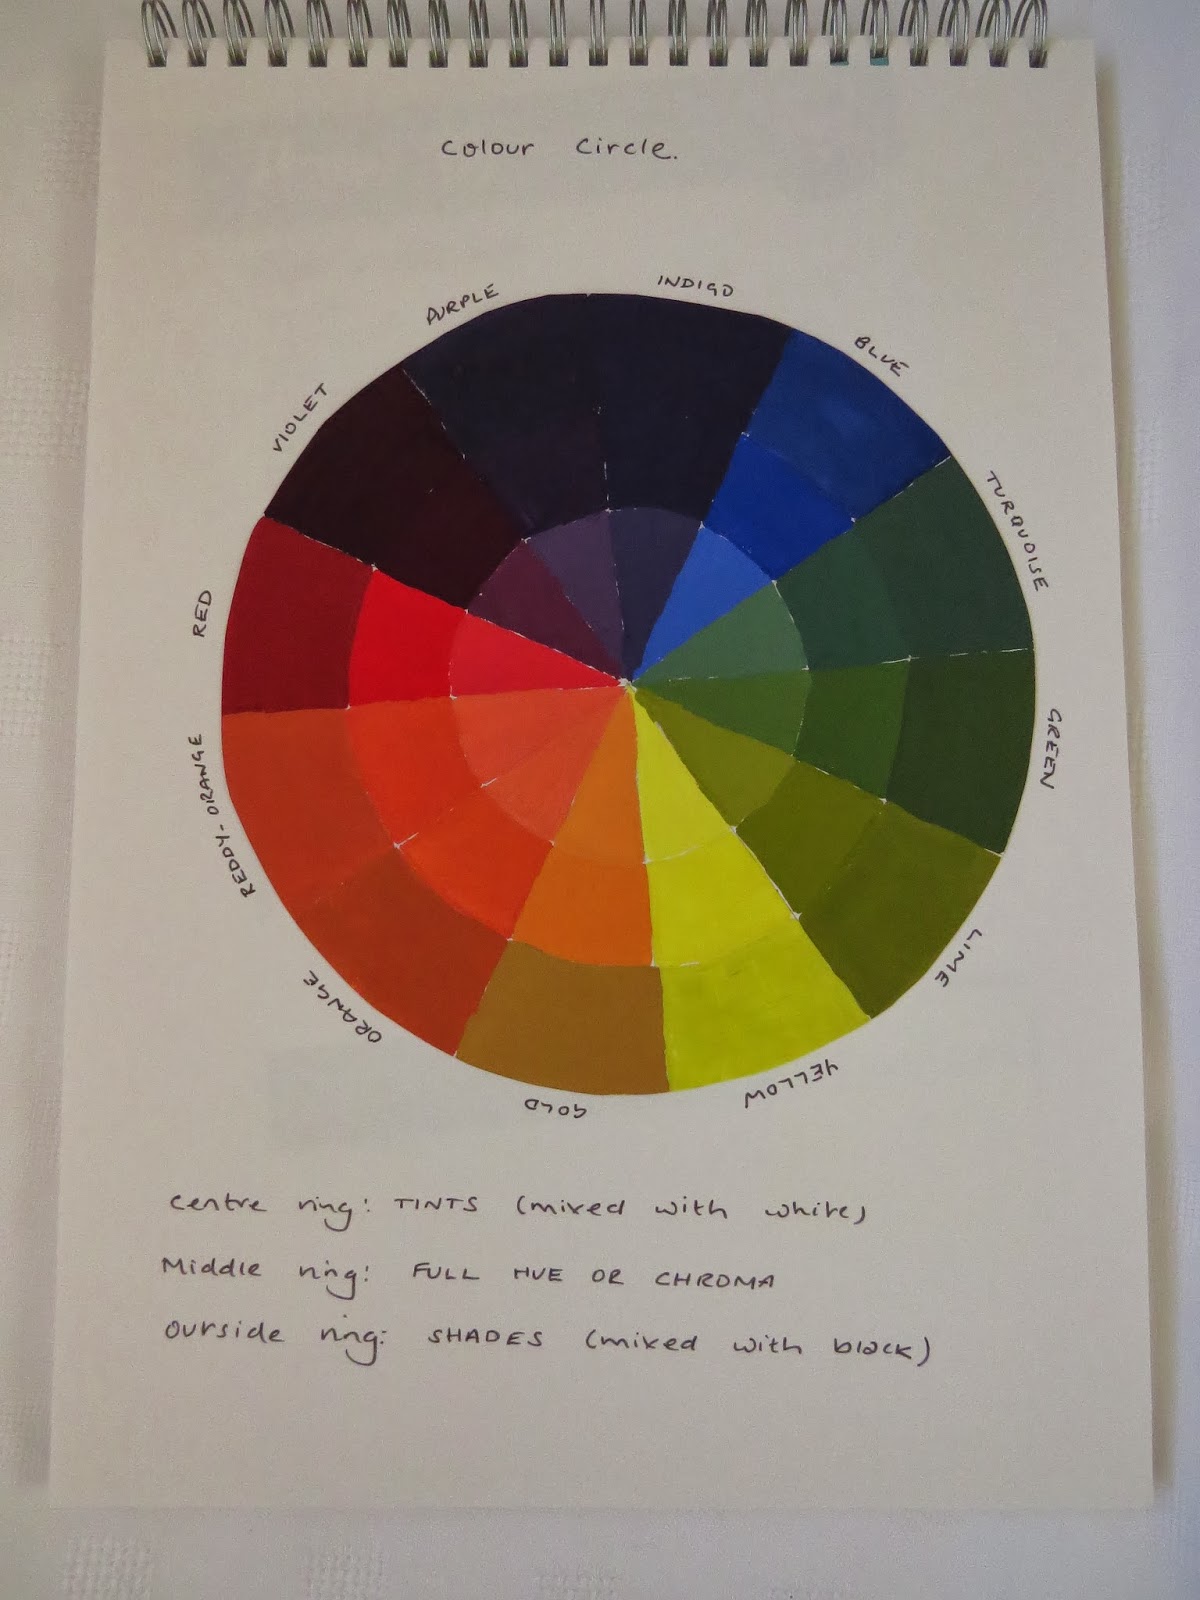 Colour Circle.
PURPLE
INDIGO
BLUE
TURQUOISE
GREEN
LIME
YELLOW
GOLD
ORANGE
REDDY-ORANGE
RED
VIOLET
Centre ring: TINTS (mixed with white)
Middle ring: FULL HUE OR CHROMA
Outside ring: SHADES (mixed with black)